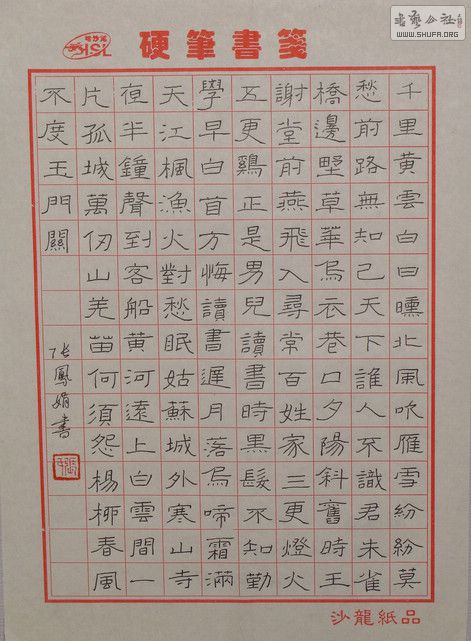 硬筆書箋
HSL
書藝公社
WWW.SHUFA.ORG
千里黄雲白日曛北風吹雁雪紛紛莫
愁前路無知己天下誰人不識君朱雀
橋邊野草華烏衣巷口夕陽斜舊時王
謝堂前燕飛入尋常百姓家三更燈火
五更鷄正是男兒讀書時黑髮不知勤
學早白首方悔讀書遲月落烏啼霜滿
天江楓漁火對愁眠姑蘇城外寒山寺
夜半鐘聲到客船黄河遠上白雲間一
片孤城萬仞山羌笛何須怨楊柳春風
不度玉門關
张鳳娟書
沙龍紙品